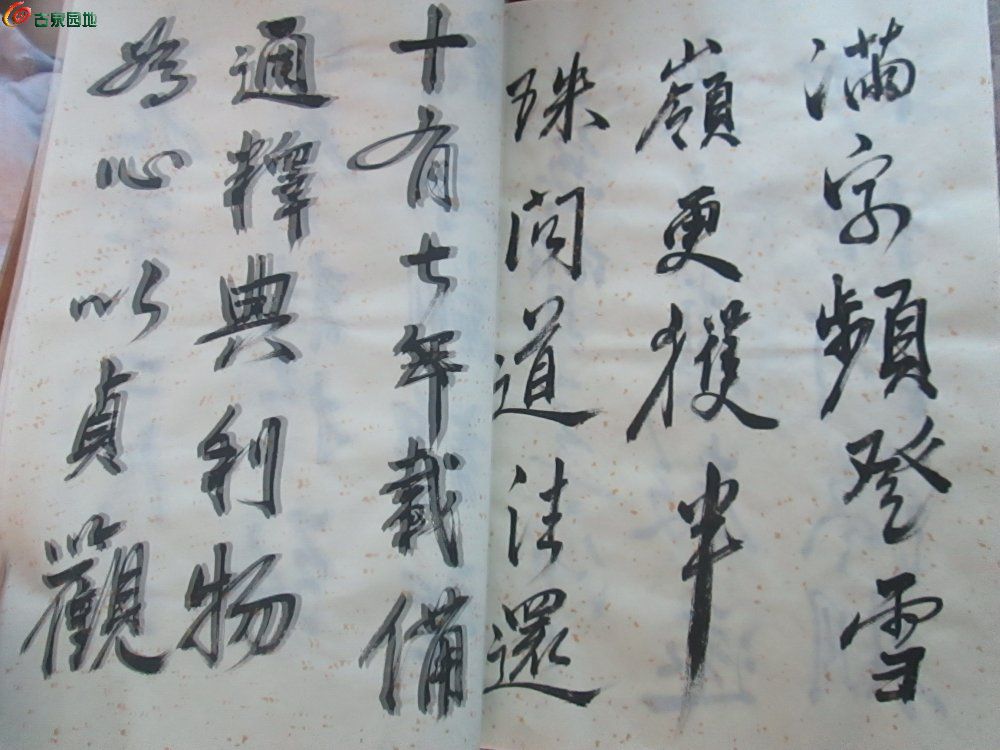 古泉园地
滿字頻登雪
嶺更獲半
珠問道往還
十有七年載備
通釋典利物
為心以貞觀